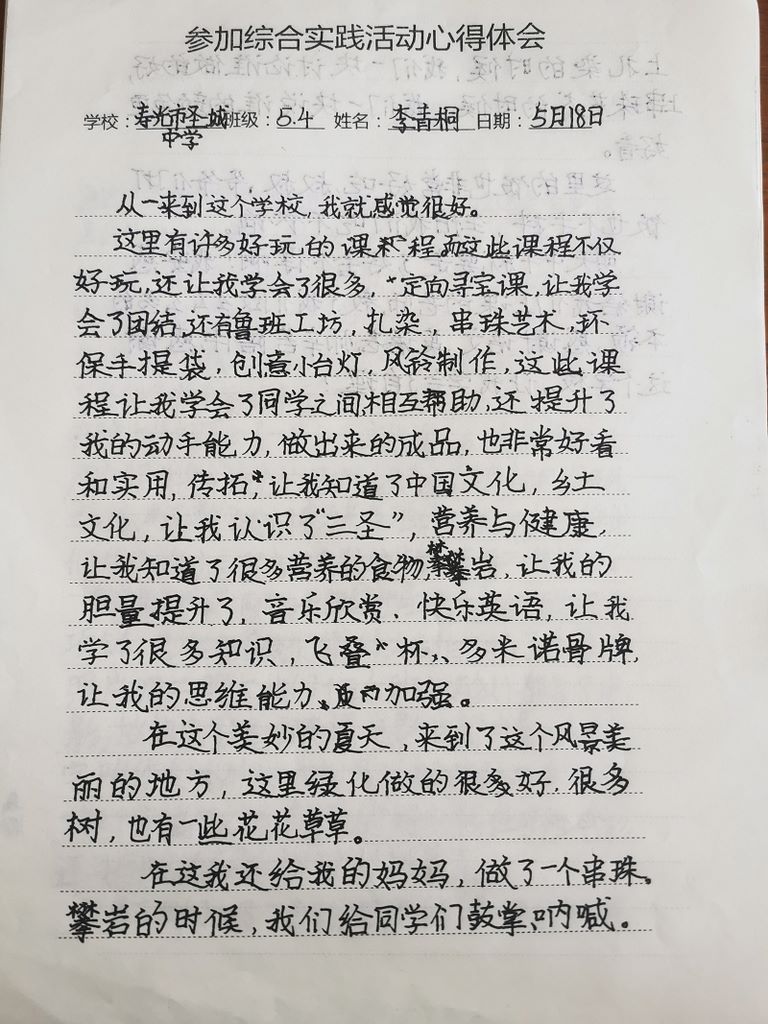 参加综合实践活动心得体会
学校：寿光市圣城中学 班级：5.4 姓名：李青桐 日期：5月18日
从一来到这个学校，我就感觉很好。
这里有许多好玩的课程，而这些课程不仅
好玩，还让我学会了很多，定向寻宝课，让我学
会了团结，还有鲁班工坊，扎染，串珠艺术，环
保手提袋，创意小台灯，风铃制作，这些课
程让我学会了同学之间相互帮助，还提升了
我的动手能力，做出来的成品，也非常好看
和实用，传拓，让我知道了中国文化，乡土
文化，让我认识了“三圣”，营养与健康，
让我知道了很多营养的食物，攀岩，让我的
胆量提升了，音乐欣赏、快乐英语，让我
学了很多知识，飞叠杯、多米诺骨牌，
让我的思维能力、加强。
在这个美妙的夏天，来到了这个风景美
丽的地方，这里绿化做的很多好，很多
树，也有一些花花草草。
在这我还给我的妈妈，做了一个串珠。
攀岩的时候，我们给同学们鼓掌、呐喊。